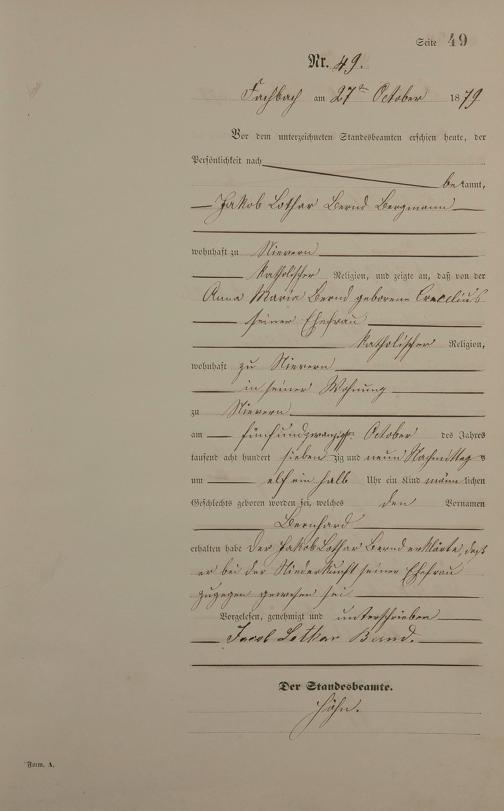 Seite 49
Nr. 49.
Fachbach am 27ten October 1879
Vor dem unterzeichneten Standesbeamten erschien heute, der
Persönlichkeit nach
bekannt,
Jakob Lothar Bernd Bergmann
wohnhaft zu Nievern
katholischer Religion, und zeigte an, daß von der
Anna Maria Bernd geborene Crecelius
seiner Ehefrau
katholischer Religion,
wohnhaft zu Nievern
in seiner Wohnung
zu Nievern
am fünfundzwanzigst October des Jahres
tausend acht hundert siebenzig und neun Nachmittags
um elf ein halb Uhr ein Kind männlichen
Geschlechts geboren worden sei, welches den Vornamen
Bernhard
erhalten habe Der Jakob Lothar Bernd erklärte, daß
er bei der Niederkunft seiner Ehefrau
zugegen gewesen sei
Vorgelesen, genehmigt und unterschrieben
Jacob Lothar Bernd.
Der Standesbeamte.
Höhn.
Form. A.